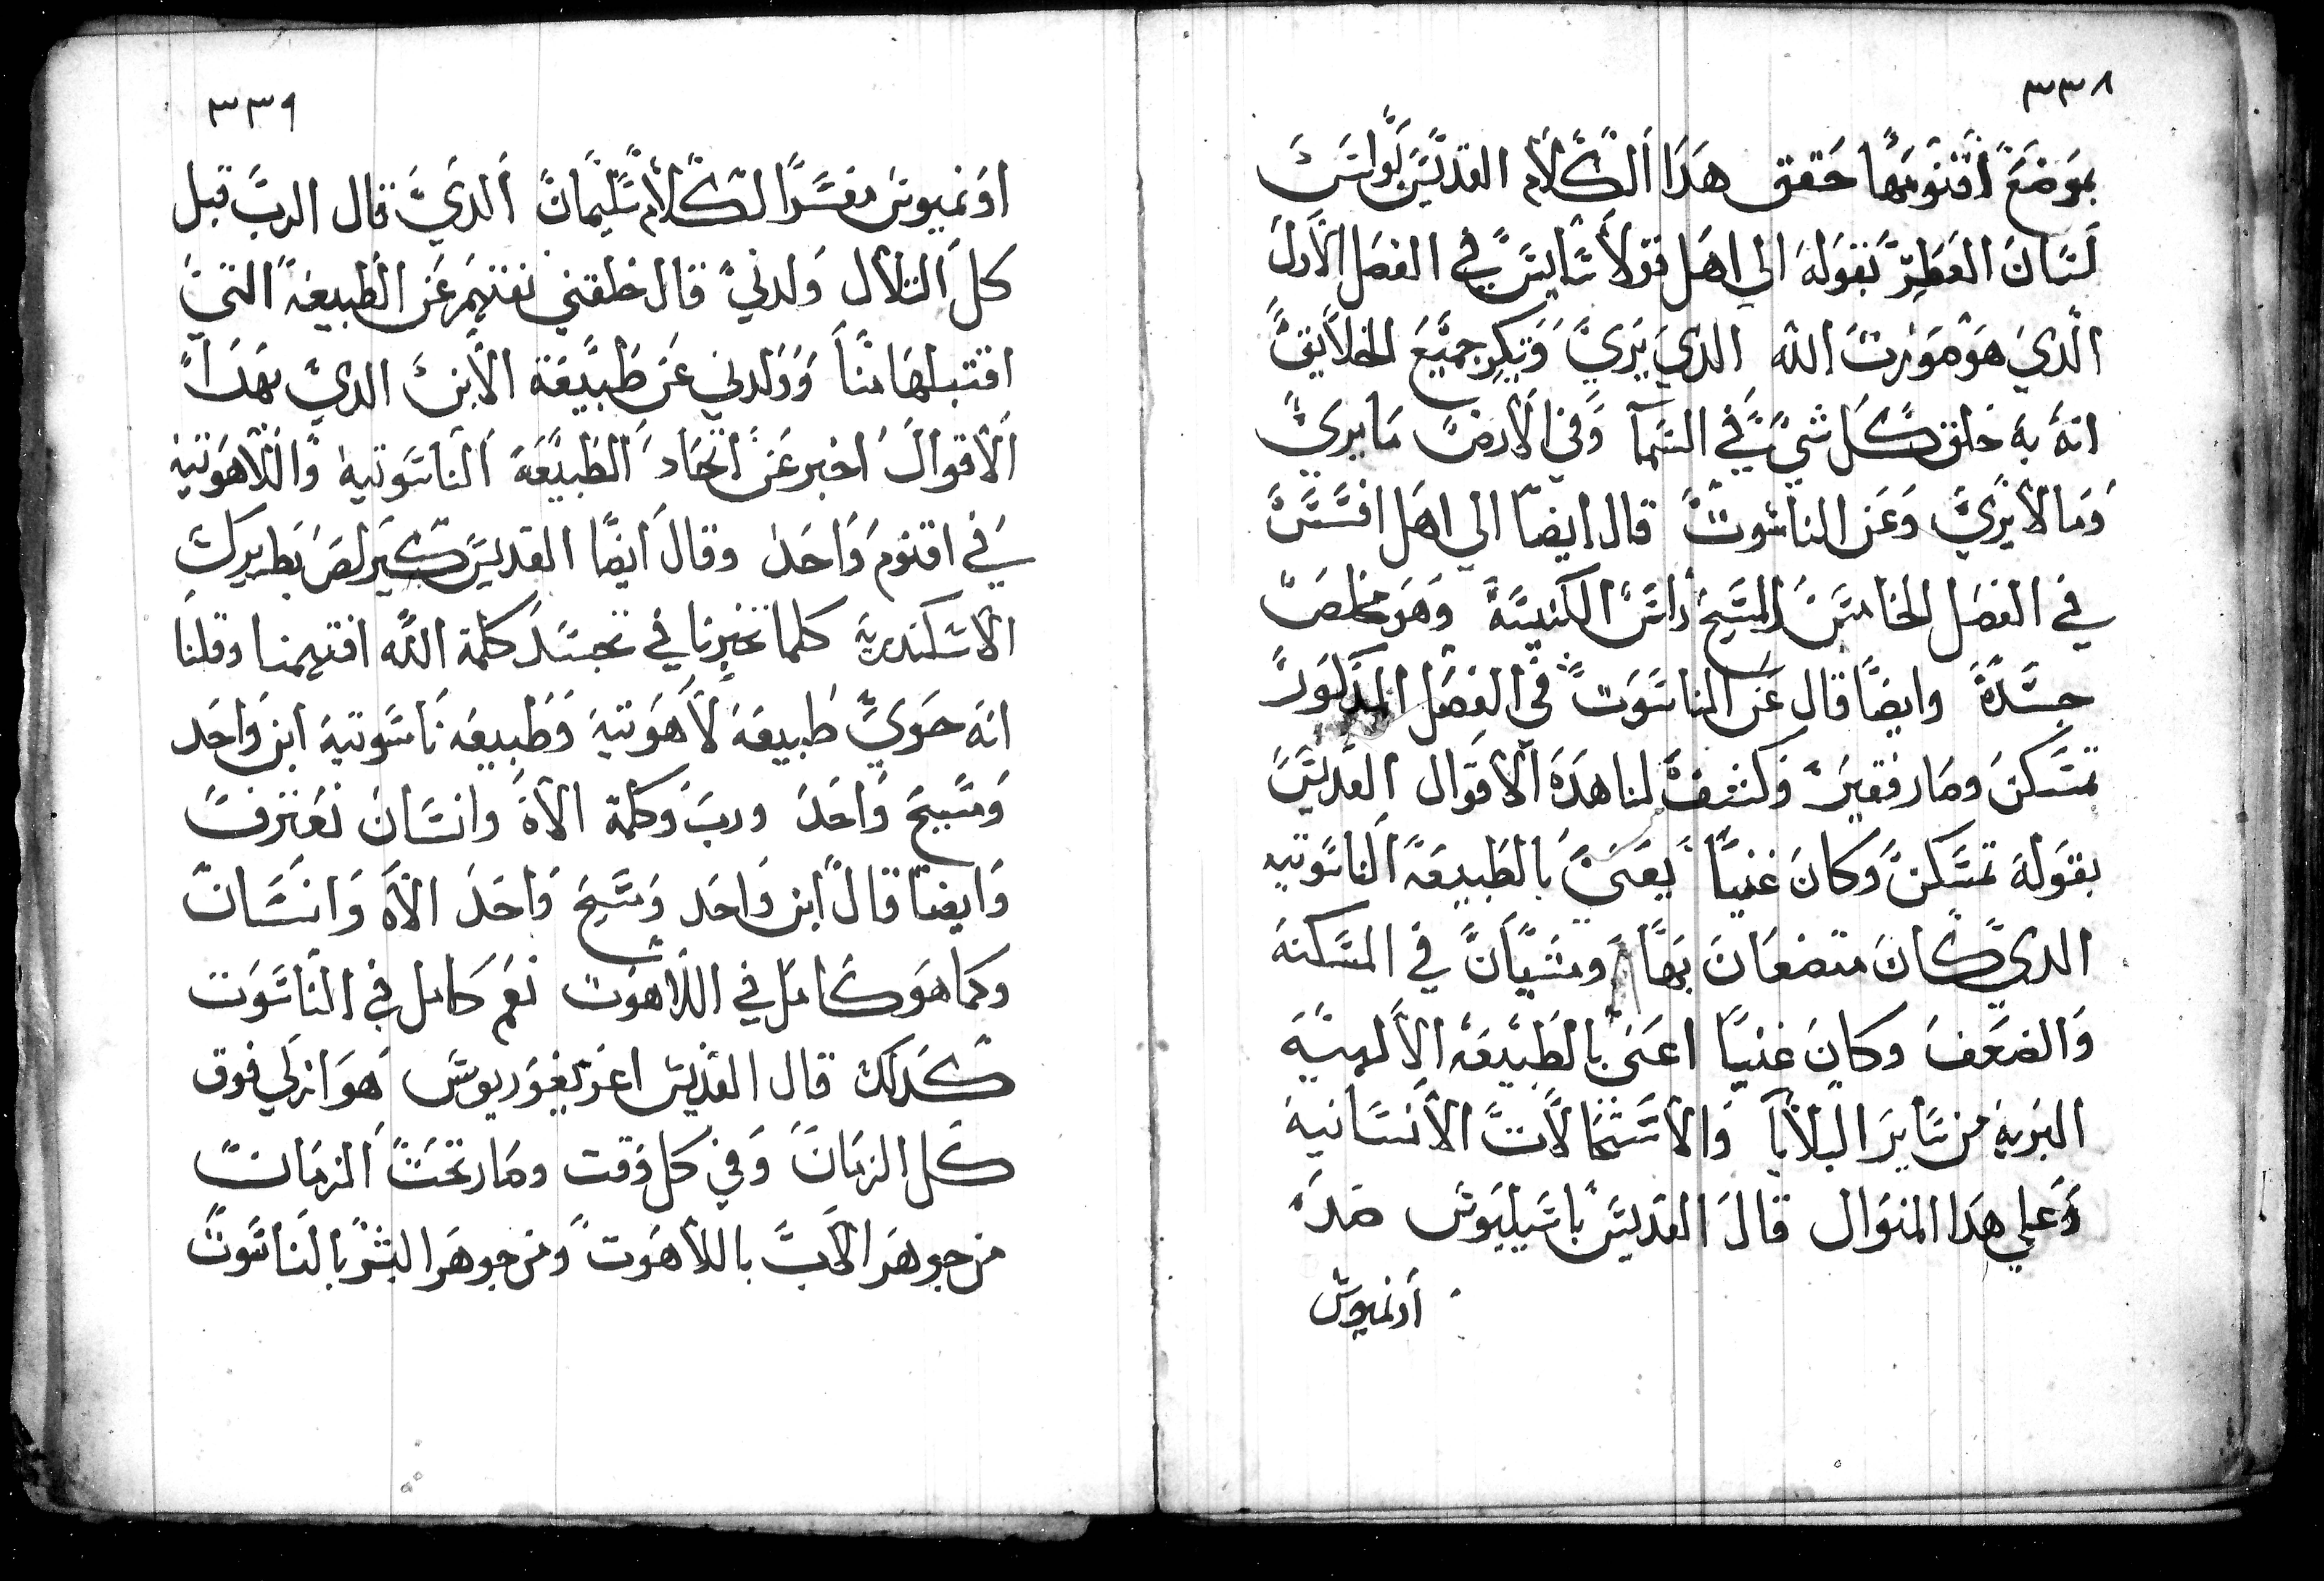 ٣٣٨
بموضع اقنومها حقق هدا الكلام القديس بولس
لسان العطر بقوله الي اهل قولاسايس في الفصل الاول
الدي هو مورت الله الدي يري وبكر جميع الخلايق
انه به خلق كل شي في السما وفي الارض ما يري
وما لا يري وعن الناسوت قال ايضا الي اهل افسس
في الفصل الخامس المسيح راس الكنيسة وهو مخلص
جسده وايضا قال عن الناسوت في الفصل المدكور
تمسكن وصار فقير وكشف لنا هده الاقوال القديس
بقوله تمسكن وكان غنيا يعني بالطبيعة الناسوتيه
الدي كان متضعان بها ومشيان في المسكنة
والضعف وكان غنيا اعني بالطبيعة الالهيه
البريه من ساير البلايا والاستحالات الانسانية
وعلي هدا المنوال قال القديس باسيليوس ضد
اونميوس
٣٣٩
اونميوس مفسرا لكلام سليمان الدي قال الرب قبل
كل التلال ولدني قال خلقني نفتهم عن الطبيعة التي
اقتبلها منا وولدني عن طبيعة الابن الدي بهدا
الاقوال اخبر عن اتحاد الطبيعة الناسوتيه واللاهوتيه
في اقنوم واحد وقال ايضا القديس كيرلص بطريرك
الاسكندرية كلما تخبرنا في تجسد كلمة الله افتهمنا وقلنا
انه حوي طبيعة لاهوتية وطبيعه ناسوتية ابن واحد
ومسيح واحد ورب وكلمة الاه وانسان نعترف
وايضا قال ابن واحد ومسيح واحد الاه وانسان
وكما هو كامل في اللاهوت نعم كامل في الناسوت
كدلك قال القديس اغريغوريوس هو ازلي فوق
كل الزمان وفي كل وقت وصار تحت الزمان
من جوهر الاب باللاهوت ومن جوهر البشر بالناسوت